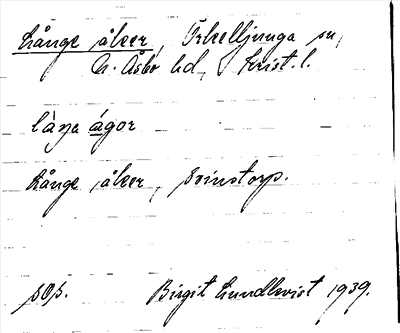 Långe åker, Örkelljunga sn,
N. Åsbo hd, Krist. l.
làŋa ágor
Långe åker, Svinstorp.
sop.
Birgit Lundkvist 1939.